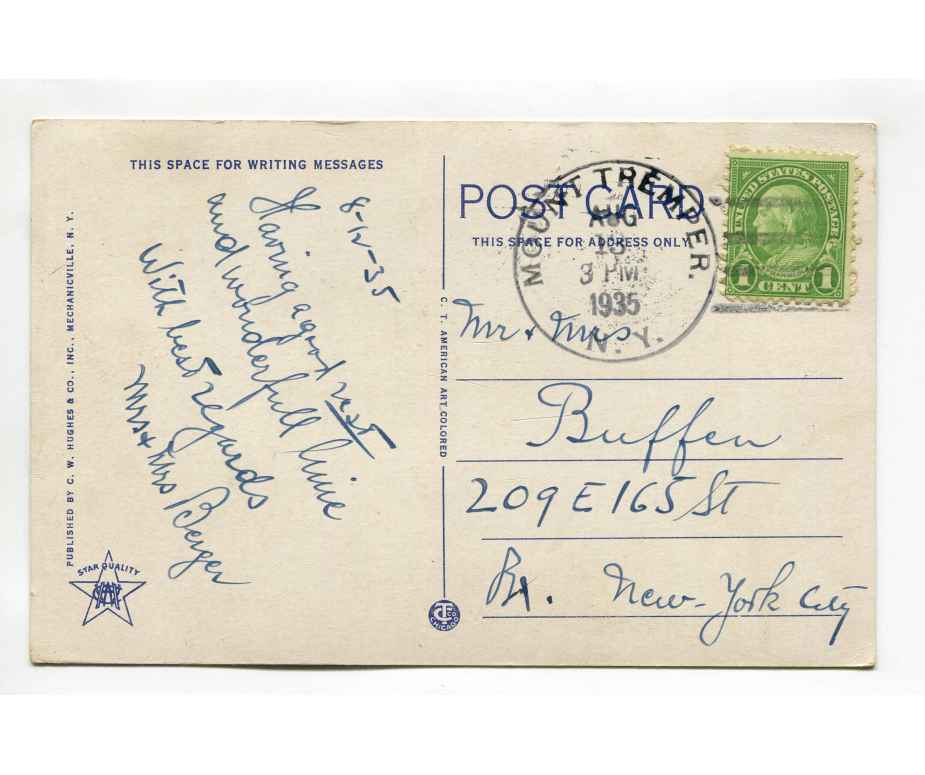 THIS SPACE FOR WRITING MESSAGES
8-12-35
Having a good rest
and wonderfull time
With best regards
Mrs & Mrs Berger
PUBLISHED BY C. W. HUGHES & CO., INC., MECHANICVILLE, N. Y.
STAR QUALITY
C. T. AMERICAN ART COLORED
CHICAGO
POST CARD
THIS SPACE FOR ADDRESS ONLY
MOUNT TREMPER.
AUG
13
3 PM
1935
N. Y.
UNITED STATES POSTAGE
1 CENT 1
Mr & Mrs
Buffen
209 E 165 St
Bx. New-York City